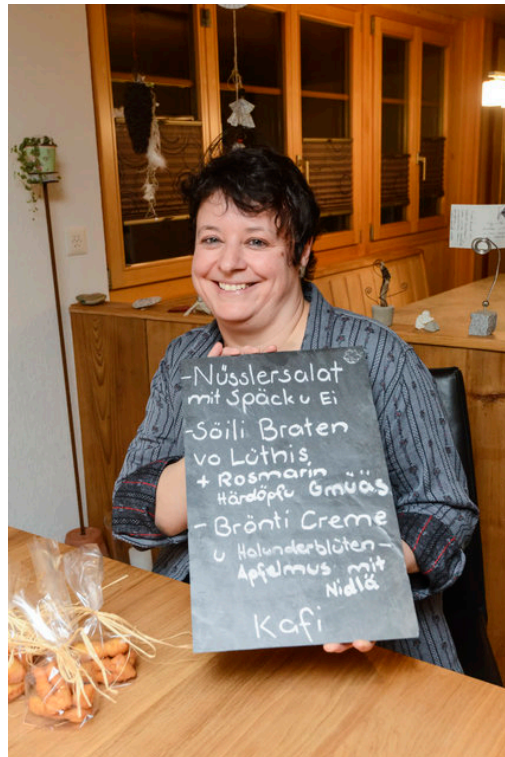 -Nüsslersalat
mit Späck u Ei
-Söili Braten
vo Lüthis
+ Rosmarin
Härdöpfu Gmüäs
- Brönti Creme
u Holunderblüten-
Apfelmus mit
Nidlä
Kafi